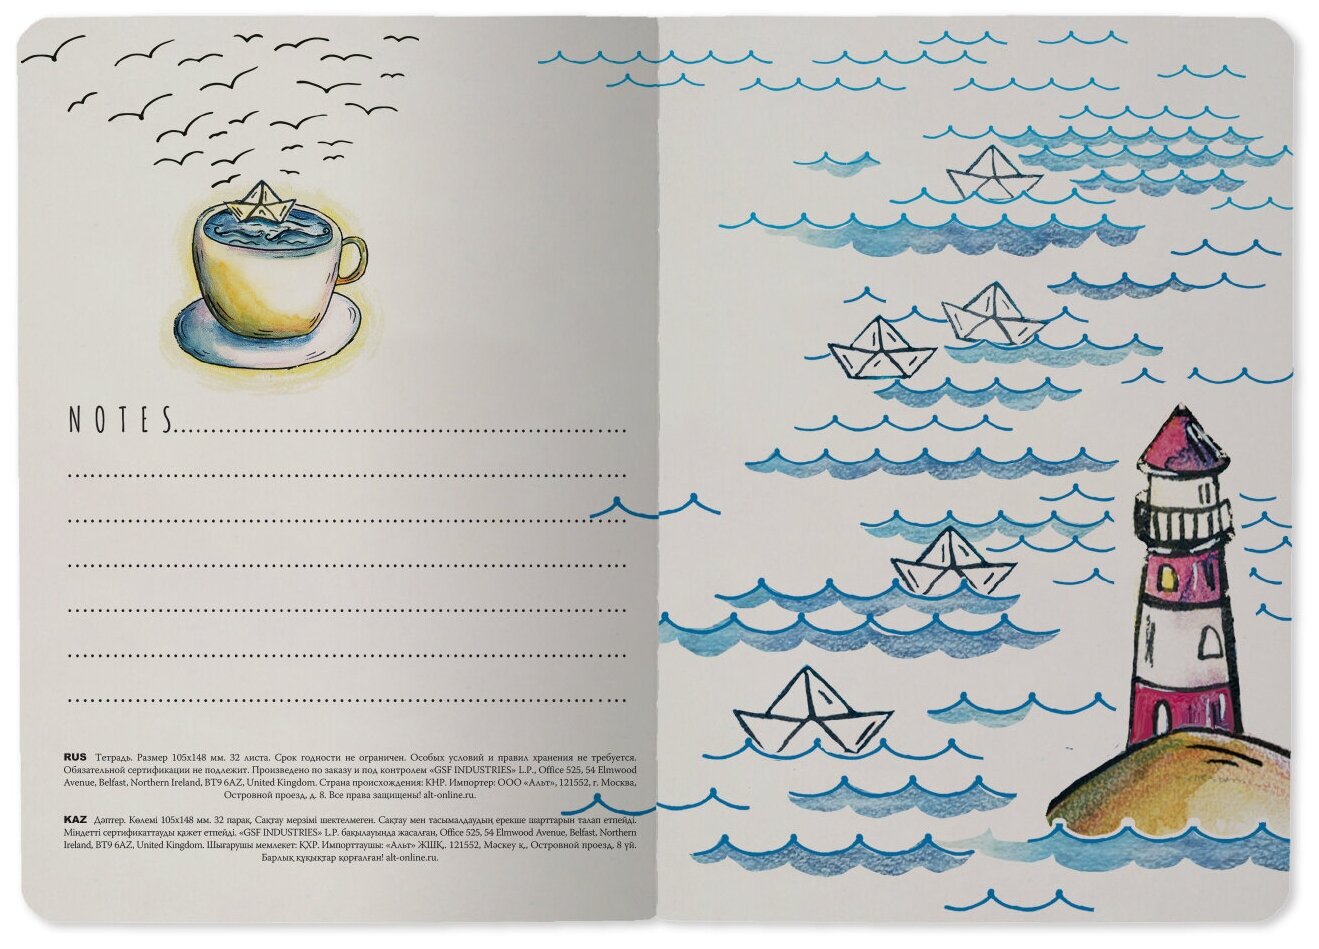 NOTES
RUS Тетрадь. Размер 105x148 мм. 32 листа. Срок годности не ограничен. Особых условий и правил хранения не требуется.
Обязательной сертификации не подлежит. Произведено по заказу и под контролем «GSF INDUSTRIES» L.P., Office 525, 54 Elmwood
Avenue, Belfast, Northern Ireland, BT9 6AZ, United Kingdom. Страна происхождения: КНР. Импортер: ООО «Альт», 121552, г. Москва,
Островной проезд, д. 8. Все права защищены! alt-online.ru.
KAZ Дәптер. Көлемі 105x148 мм. 32 парақ, Сақтау мерзімі шектелмеген. Сақтау мен тасымалдаудың ерекше шарттарын талап етпейді.
Міндетті сертификаттауды қажет етпейді. «GSF INDUSTRIES» L.P. бақылауында жасалған, Office 525, 54 Elmwood Avenue, Belfast, Northern
Ireland, BT9 6AZ, United Kingdom. Шығарушы мемлекет: ҚХР. Импорттаушы: «Альт» ЖШҚ,. 121552, Мәскеу қ., Островной проезд, 8 үй.
Барлық құқықтар қорғалған! alt-online.ru.